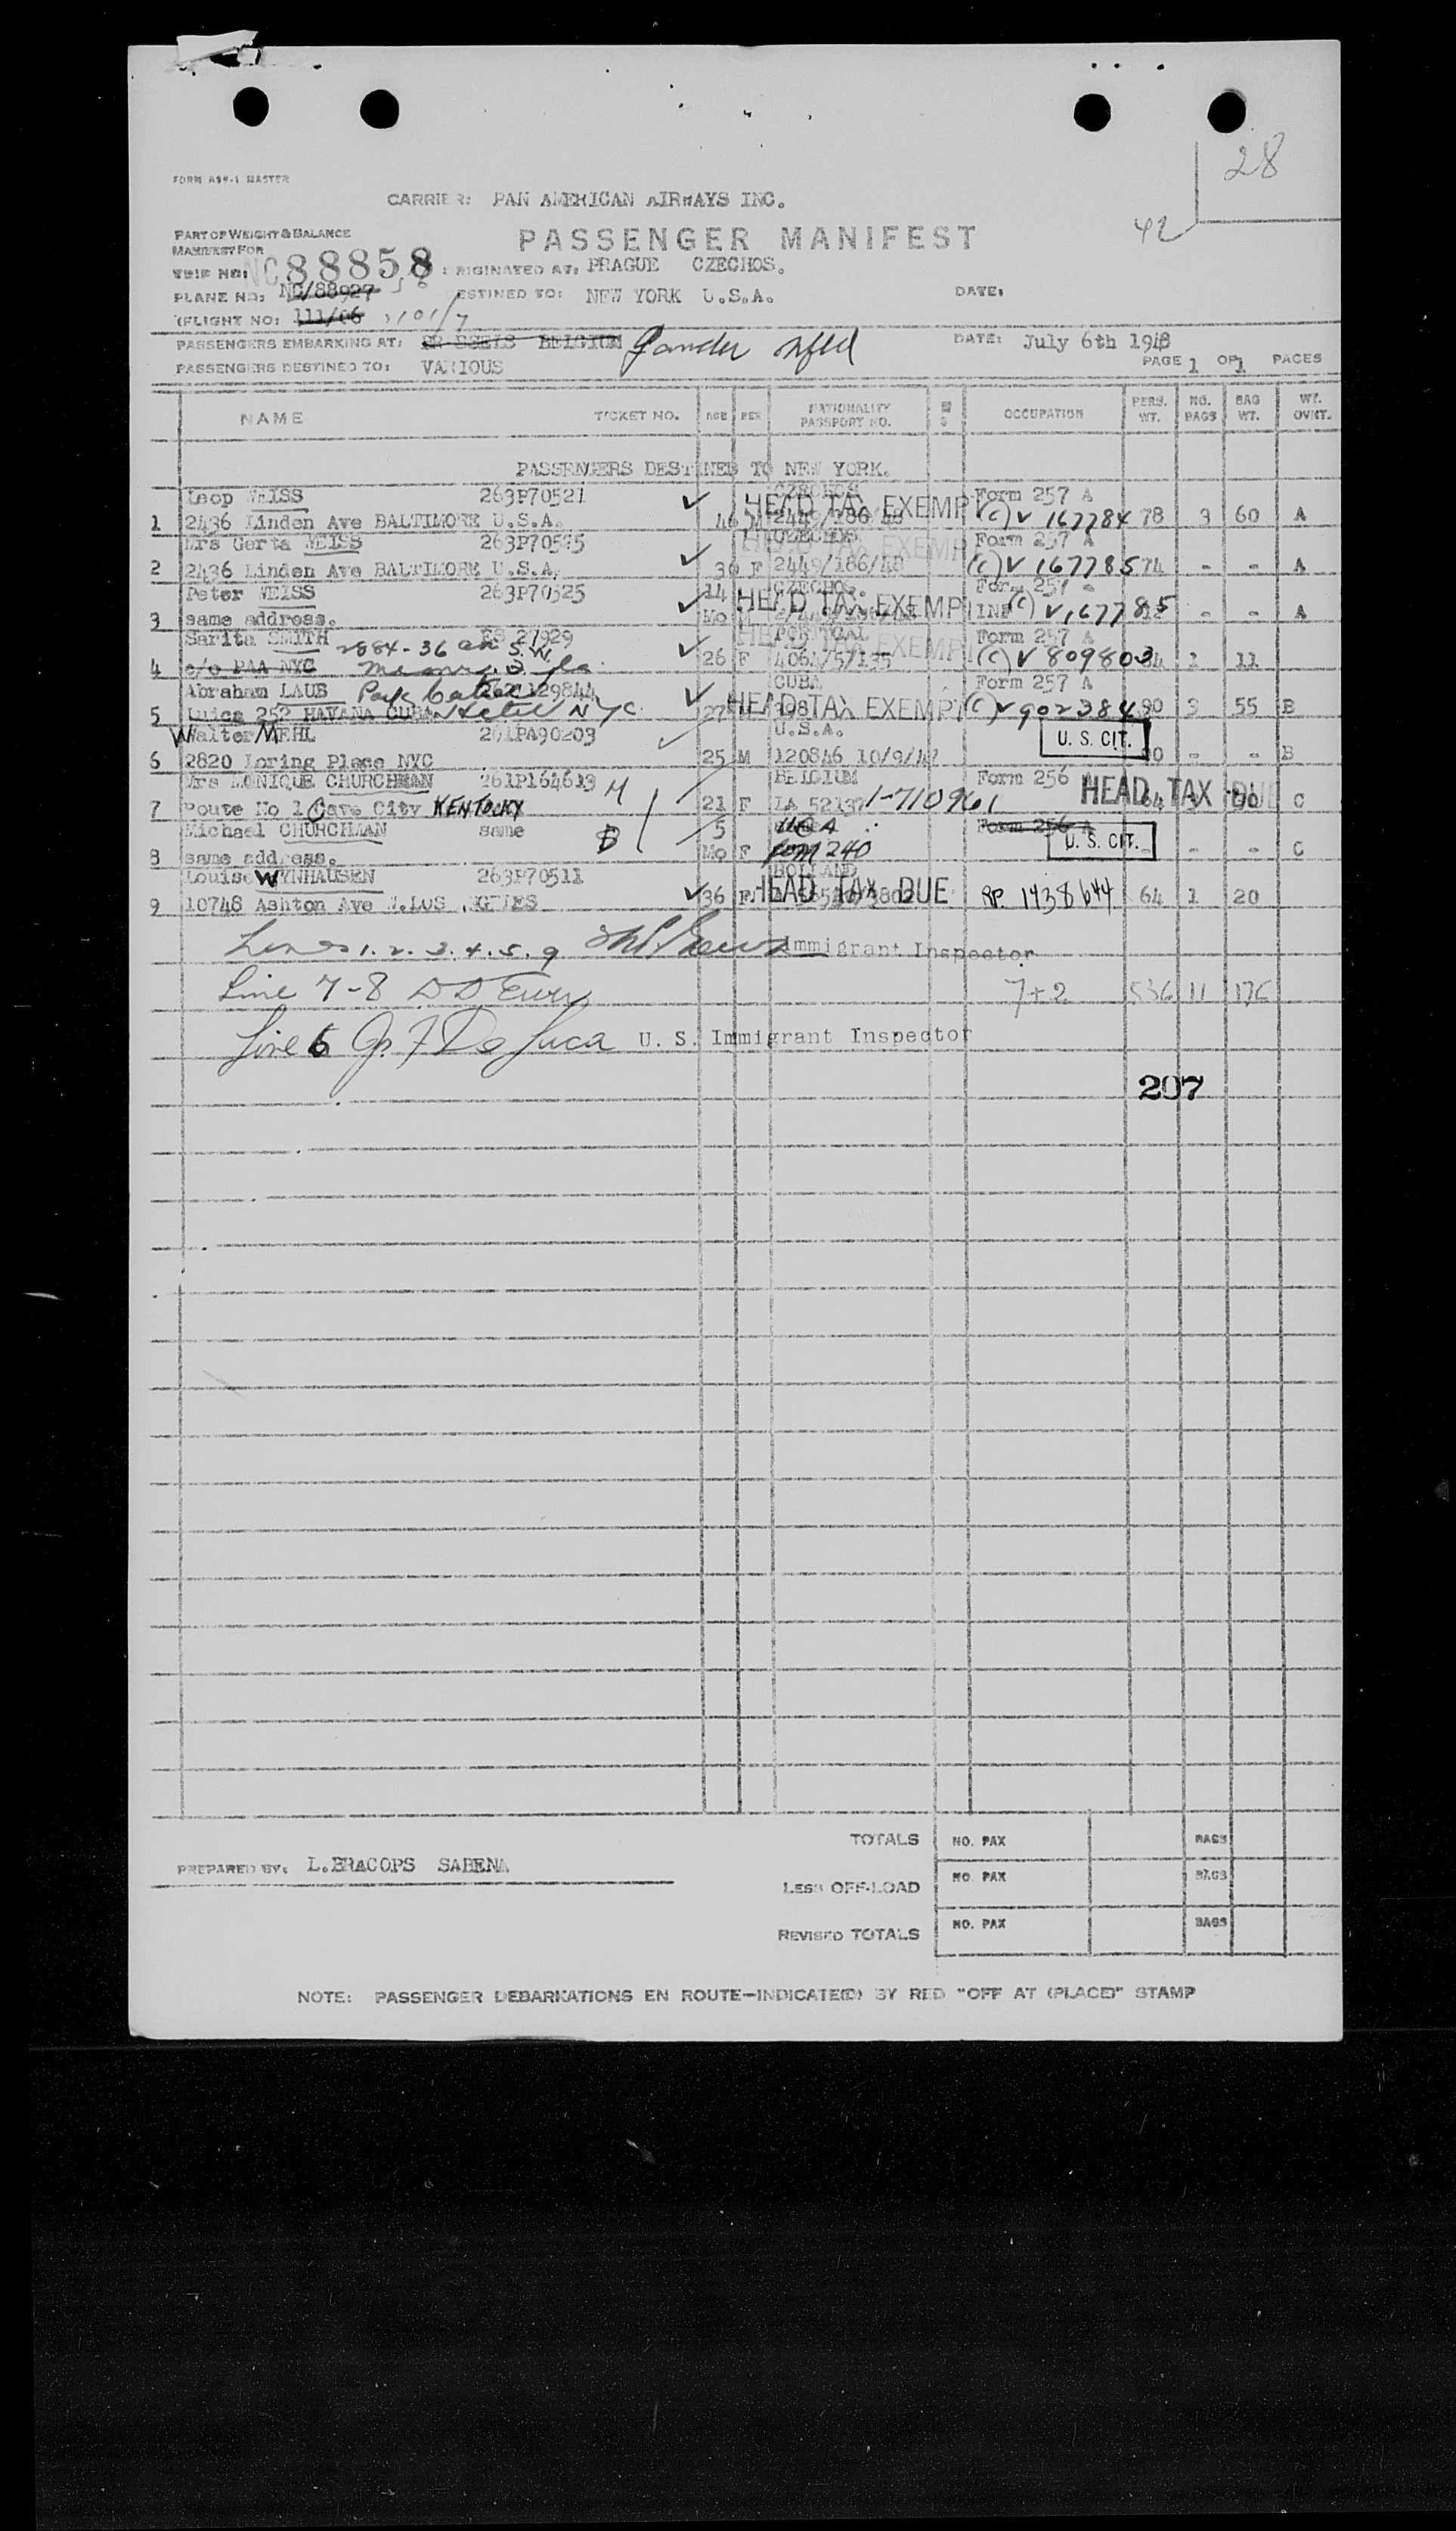 28
42
FORM A99-1 MASTER
CARRIER: PAN AMERICAN AIRWAYS INC.
PART OF WEIGHT & BALANCE
MANIFEST FOR
PASSENGER MANIFEST
TRIP NO: NC88858 ORIGINATED AT: PRAGUE CZECHOS.
PLANE NO: NC/88927 DESTINED TO: NEW YORK U.S.A. DATE:
(FLIGHT NO: 111/06 101/7
PASSENGERS EMBARKING AT: BRUSSELS BELGIUM Gander Nfld DATE: July 6th 1948
PASSENGERS DESTINED TO: VARIOUS PAGE 1 OF 1 PAGES
NAME TICKET NO. AGE SEX NATIONALITY PASSPORT NO. M S OCCUPATION PERS. WT. NO. BAGS BAG WT. WT. OVNT.
PASSENGERS DESTINED TO NEW YORK.
Leop WEISS 263P70521 CZECHOS HEAD TAX EXEMPT Form 257 A
1 2436 Linden Ave BALTIMORE U.S.A. 46 M 2449/186/48 (C) V 167784 78 3 60 A
Mrs Gerta WEISS 263P70525 CZECHOS HEAD TAX EXEMPT Form 257 A
2 2436 Linden Ave BALTIMORE U.S.A. 30 F 2449/186/48 (C) V 167785 74 - - A
Peter WEISS 263P70525 14 CZECHOS. HEAD TAX EXEMPT Form 257
3 same address. Mo INF (C) V 167785 - - A
Sarita SMITH 2884-36 S.W. ES 27929 PORTUGAL HEAD TAX EXEMPT Form 257 A
4 c/o PAA NYC Miami, Fla 26 F 4064/5/135 (C) V 809803 1 11
Abraham LAUB Park Central CUBA Form 257 A
5 Luica 252 HAVANA CUBA Hotel NYC 27 HEAD TAX EXEMPT (C) V 902384 90 3 55 B
Walter MEHL 261PA90203 U.S.A. U. S. CIT.
6 2820 Loring Place NYC 25 M 120846 10/9/47 - - B
Mrs MONIQUE CHURCHMAN 261P164613 M BELGIUM Form 256 HEAD TAX DUE
7 Route No 1 Cave City KENTUCKY 21 F LA 52137 1-710961 64 C
Michael CHURCHMAN same B 5 USA Form 256 A U. S. CIT.
8 same address. Mo F form 240 - - C
Louise WYNHAUSEN 263P70511 HOLLAND HEAD TAX DUE
9 10748 Ashton Ave W.LOS ANGELES 36 F RP. 1438644 64 1 20
Lines 1.2.3.4.5.9 Immigrant Inspector
Line 7-8 7+2 536 11 176
Line 6 De Luca U. S. Immigrant Inspector
207
TOTALS NO. PAX BAGS
PREPARED BY: L.BRACOPS SABENA
LESS OFF-LOAD NO. PAX BAGS
REVISED TOTALS NO. PAX BAGS
NOTE: PASSENGER DEBARKATIONS EN ROUTE—INDICATE(D) BY RED "OFF AT (PLACE)" STAMP